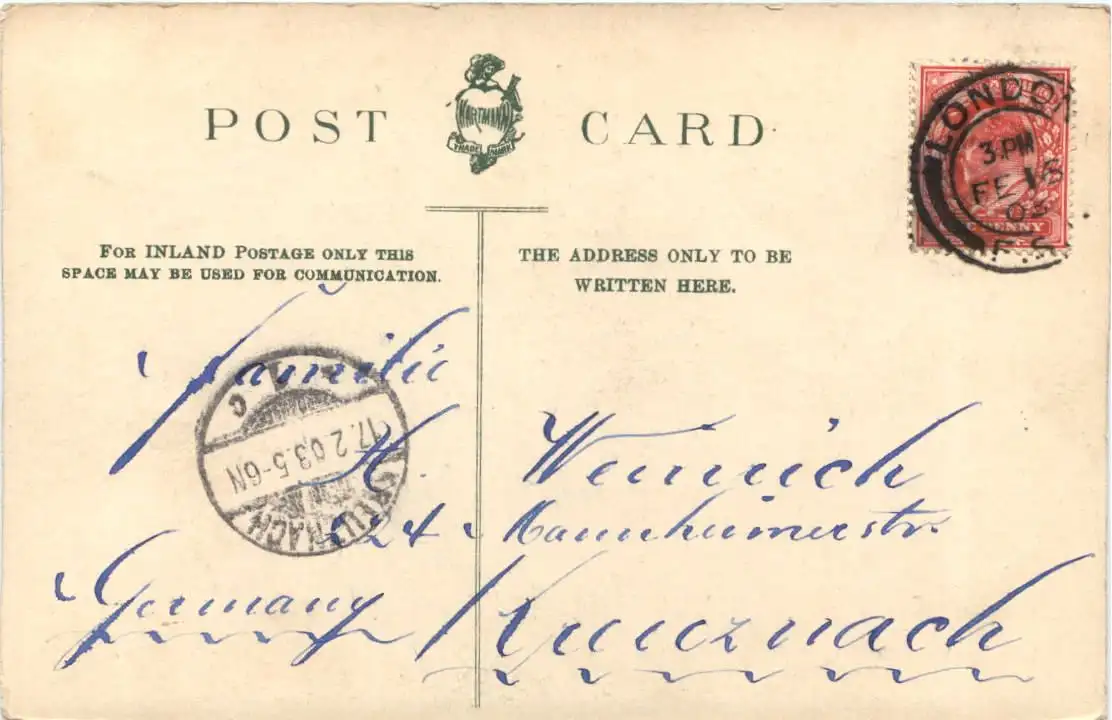 POST CARD
HARTMANN
TRADE MARK
LONDON
3.PM
FE 16
03
F.S
PENNY
FOR INLAND POSTAGE ONLY THIS
SPACE MAY BE USED FOR COMMUNICATION.
THE ADDRESS ONLY TO BE
WRITTEN HERE.
Familie
H. Weinrich
24 Mannheimerstr.
Germany Kreuznach
KREUZNACH
17.2.03.5-6N
C